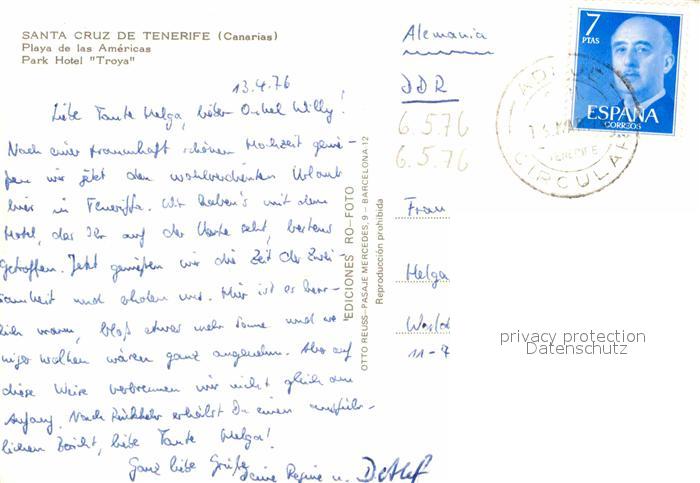 SANTA CRUZ DE TENERIFE (Canarias)
Playa de las Américas
Park Hotel "Troya"
13.4.76
Liebe Tante Helga, lieber Onkel Willy!
Nach einer traumhaft schönen Hochzeit genie-
ßen wir jetzt den wohlverdienten Urlaub
hier in Teneriffa. Wir haben's mit dem
Hotel, das Ihr auf der Karte seht, bestens
getroffen. Jetzt genießen wir die Zeit der Zwei-
samkeit und erholen uns. Hier ist es herr-
lich warm, bloß etwas mehr Sonne und we
niger Wolken wären ganz angenehm. Aber auf
diese Weise verbrennen wir nicht gleich am
Anfang. Nach Rückkehr erhälst Du einen ausführ-
lichen Bericht, liebe Tante Helga!
Ganz liebe Grüße
Deine Regine u. Detlef
EDICIONES RO-FOTO
OTTO REUSS-PASAJE MERCEDES, 9 - BARCELONA-12
Reproducción prohibida
Alemania
DDR
6.5.76
6.5.76
Frau
Helga
11-7
7
PTAS
ESPAÑA
CORREOS
CIRCULAR
TENERIFE
privacy protection
Datenschutz